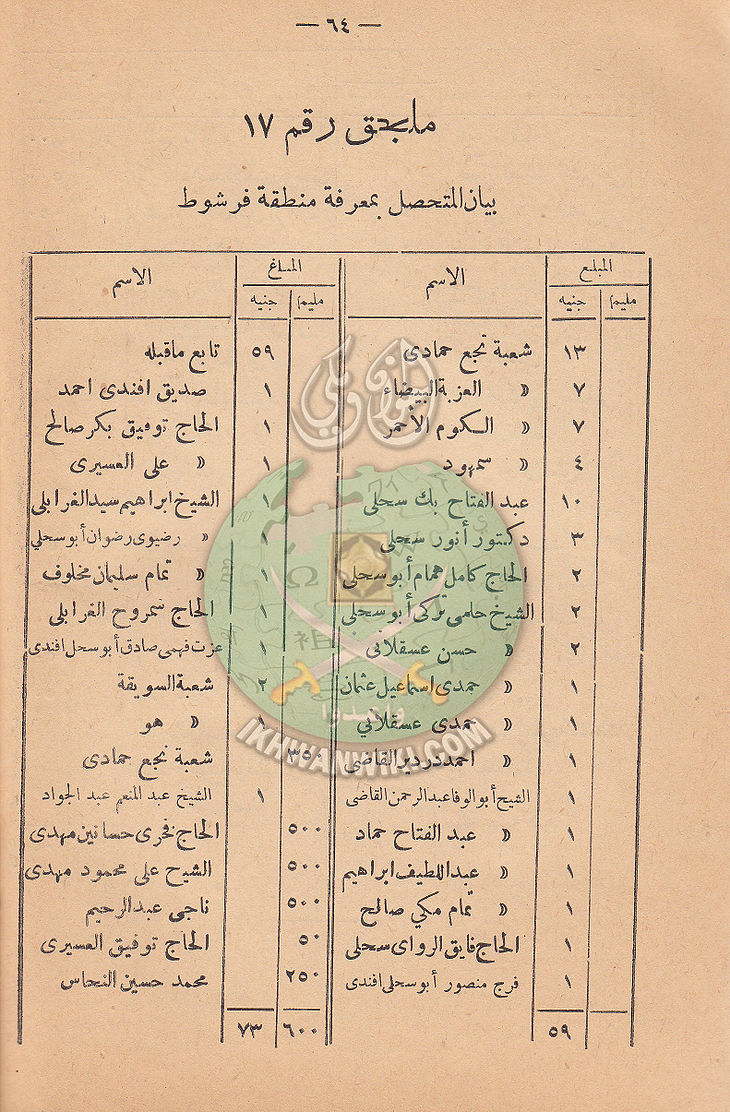 — ٦٤ —
ملحق رقم ١٧
بيان المتحصل بمعرفة منطقة فرشوط
المبلغ الاسم المبلغ الاسم
مليم جنيه مليم جنيه
١٣ شعبة نجع حمادى
٧ » العزبة البيضاء
٧ » الكوم الأحمر
٤ » سمهود
١٠ عبد الفتاح بك سحلى
٣ دكتور أنور سحلى
٢ الحاج كامل همام أبو سحلى
٢ الشيخ حلمى تركى أبو سحلى
٢ » حسن عسقلانى
١ » حمدى اسماعيل عثمان
١ » حمدى عسقلانى
١ » احمد دردير القاضى
١ الشيخ أبو الوفا عبد الرحمن القاضى
١ » عبد الفتاح حماد
١ » عبد اللطيف ابراهيم
١ » تمام مكي صالح
١ الحاج فايق الرواى سحلى
١ فرج منصور أبو سحلى افندى
٥٩
٥٩ تابع ماقبله
١ صديق افندى احمد
١ الحاج توفيق بكر صالح
١ » على العسيرى
١ الشيخ ابراهيم سيد الغرابلى
١ » رضيوى رضوان أبو سحلى
١ » تمام سليمان مخلوف
١ الحاج ممروح الغرابلى
١ عزت فهمى صادق أبو سحل افندى
٢ شعبة السويقة
١ » هو
٣٥٠ شعبة نجع حمادى
١ الشيخ عبد المنعم عبد الجواد
٥٠٠ الحاج فخرى حسانين مهدى
٥٠٠ الشيخ على محمود مهدى
٥٠٠ ناجى عبد الرحيم
٥٠ الحاج توفيق العسيرى
٢٥٠ محمد حسين النحاس
٦٠٠ ٧٣
وأعدوا
IKHWANWIKI.COM